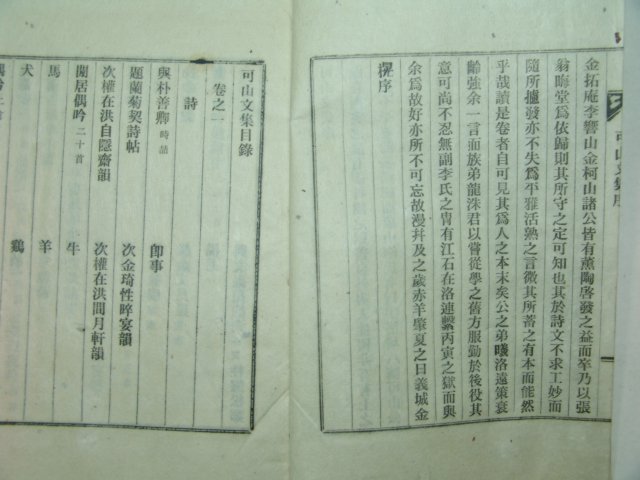 可山文集序
金拓庵李響山金柯山諸公皆有薰陶啓發之益而峯乃以張
翁晦堂爲依歸則其所守之定可知也其於詩文不求工妙而
隨所攄發亦不失爲平雅活熟之言微其所蓄之有本而能然
乎哉讀是卷者自可見其爲人之本末矣公之弟曦洛遠策衰
齡强余一言而族弟龍洙君以嘗從學之舊方服勤於後役其
意可尚不忍無副李氏之胄有江石在洛連繫丙寅之獄而與
余爲故好亦所不可忘故漫幷及之歲赤羊肇夏之日義城金
㮨序
可山文集目錄
卷之一
詩
與朴善卿 時喆
題蘭菊契詩帖 卽事
次權在洪自隱齋韻 次金琦性晬宴韻
閒居偶吟 二十首 次權在洪間月軒韻
馬 牛
犬 羊
鷄